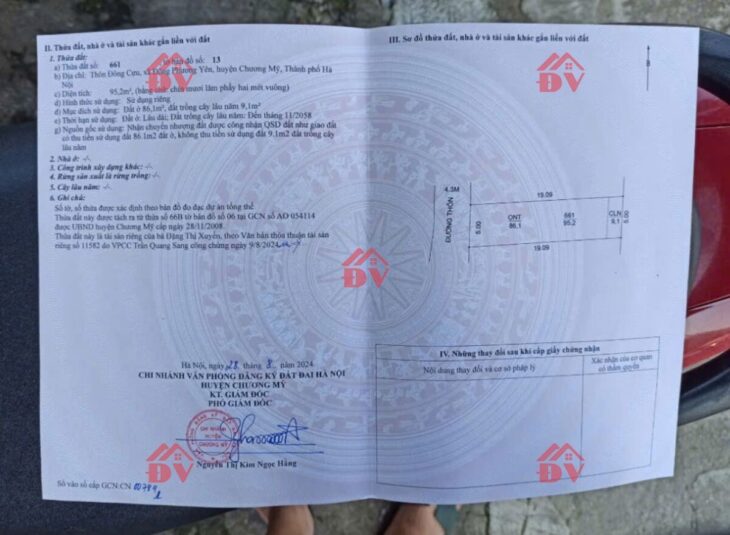 II. Thửa đất, nhà ở và tài sản khác gắn liền với đất
1. Thửa đất:
a) Thửa đất số: 661 tờ bản đồ số: 13
b) Địa chỉ: Thôn Đồng Cựu, xã Đông Phương Yên, huyện Chương Mỹ, Thành phố Hà
Nội
c) Diện tích: 95,2m², (bằng chữ: chín mươi lăm phẩy hai mét vuông)
d) Hình thức sử dụng: Sử dụng riêng
đ) Mục đích sử dụng: Đất ở 86,1m², đất trồng cây lâu năm 9,1m²
e) Thời hạn sử dụng: Đất ở: Lâu dài; Đất trồng cây lâu năm: Đến tháng 11/2058
g) Nguồn gốc sử dụng: Nhận chuyển nhượng đất được công nhận QSD đất như giao đất
có thu tiền sử dụng đất 86.1m2 đất ở, không thu tiền sử dụng đất 9.1m2 đất trồng cây
lâu năm
2. Nhà ở: -/-
3. Công trình xây dựng khác: -/-
4. Rừng sản xuất là rừng trồng: -/-
5. Cây lâu năm: -/-
6. Ghi chú:
Số tờ, số thửa được xác định theo bản đồ đo đạc dự án tổng thể
Thửa đất này được tách ra từ thửa số 66B tờ bản đồ số 06 tại GCN số AO 054114
được UBND huyện Chương Mỹ cấp ngày 28/11/2008
Thửa đất này là tài sản riêng của bà Đặng Thị Xuyến, theo Văn bản thỏa thuận tài sản
riêng số 11582 do VPCC Trần Quang Sang công chứng ngày 9/8/2024
Hà Nội, ngày 28 tháng 8 năm 2024
CHI NHÁNH VĂN PHÒNG ĐĂNG KÝ ĐẤT ĐAI HÀ NỘI
HUYỆN CHƯƠNG MỸ
KT. GIÁM ĐỐC
PHÓ GIÁM ĐỐC
CHI NHÁNH
HUYỆN
CHƯƠNG MỸ
Nguyễn Thị Kim Ngọc Hằng
Số vào sổ cấp GCN:CN
III. Sơ đồ thửa đất, nhà ở và tài sản khác gắn liền với đất
B
4.3M
ĐƯỜNG THÔN
19.09
5.00
ONT
86.1
661
95.2
CLN
9.1
5.00
19.09
IV. Những thay đổi sau khi cấp giấy chứng nhận
Nội dung thay đổi và cơ sở pháp lý
Xác nhận của cơ quan
có thẩm quyền
ĐV
ĐV
ĐV
ĐV
ĐV